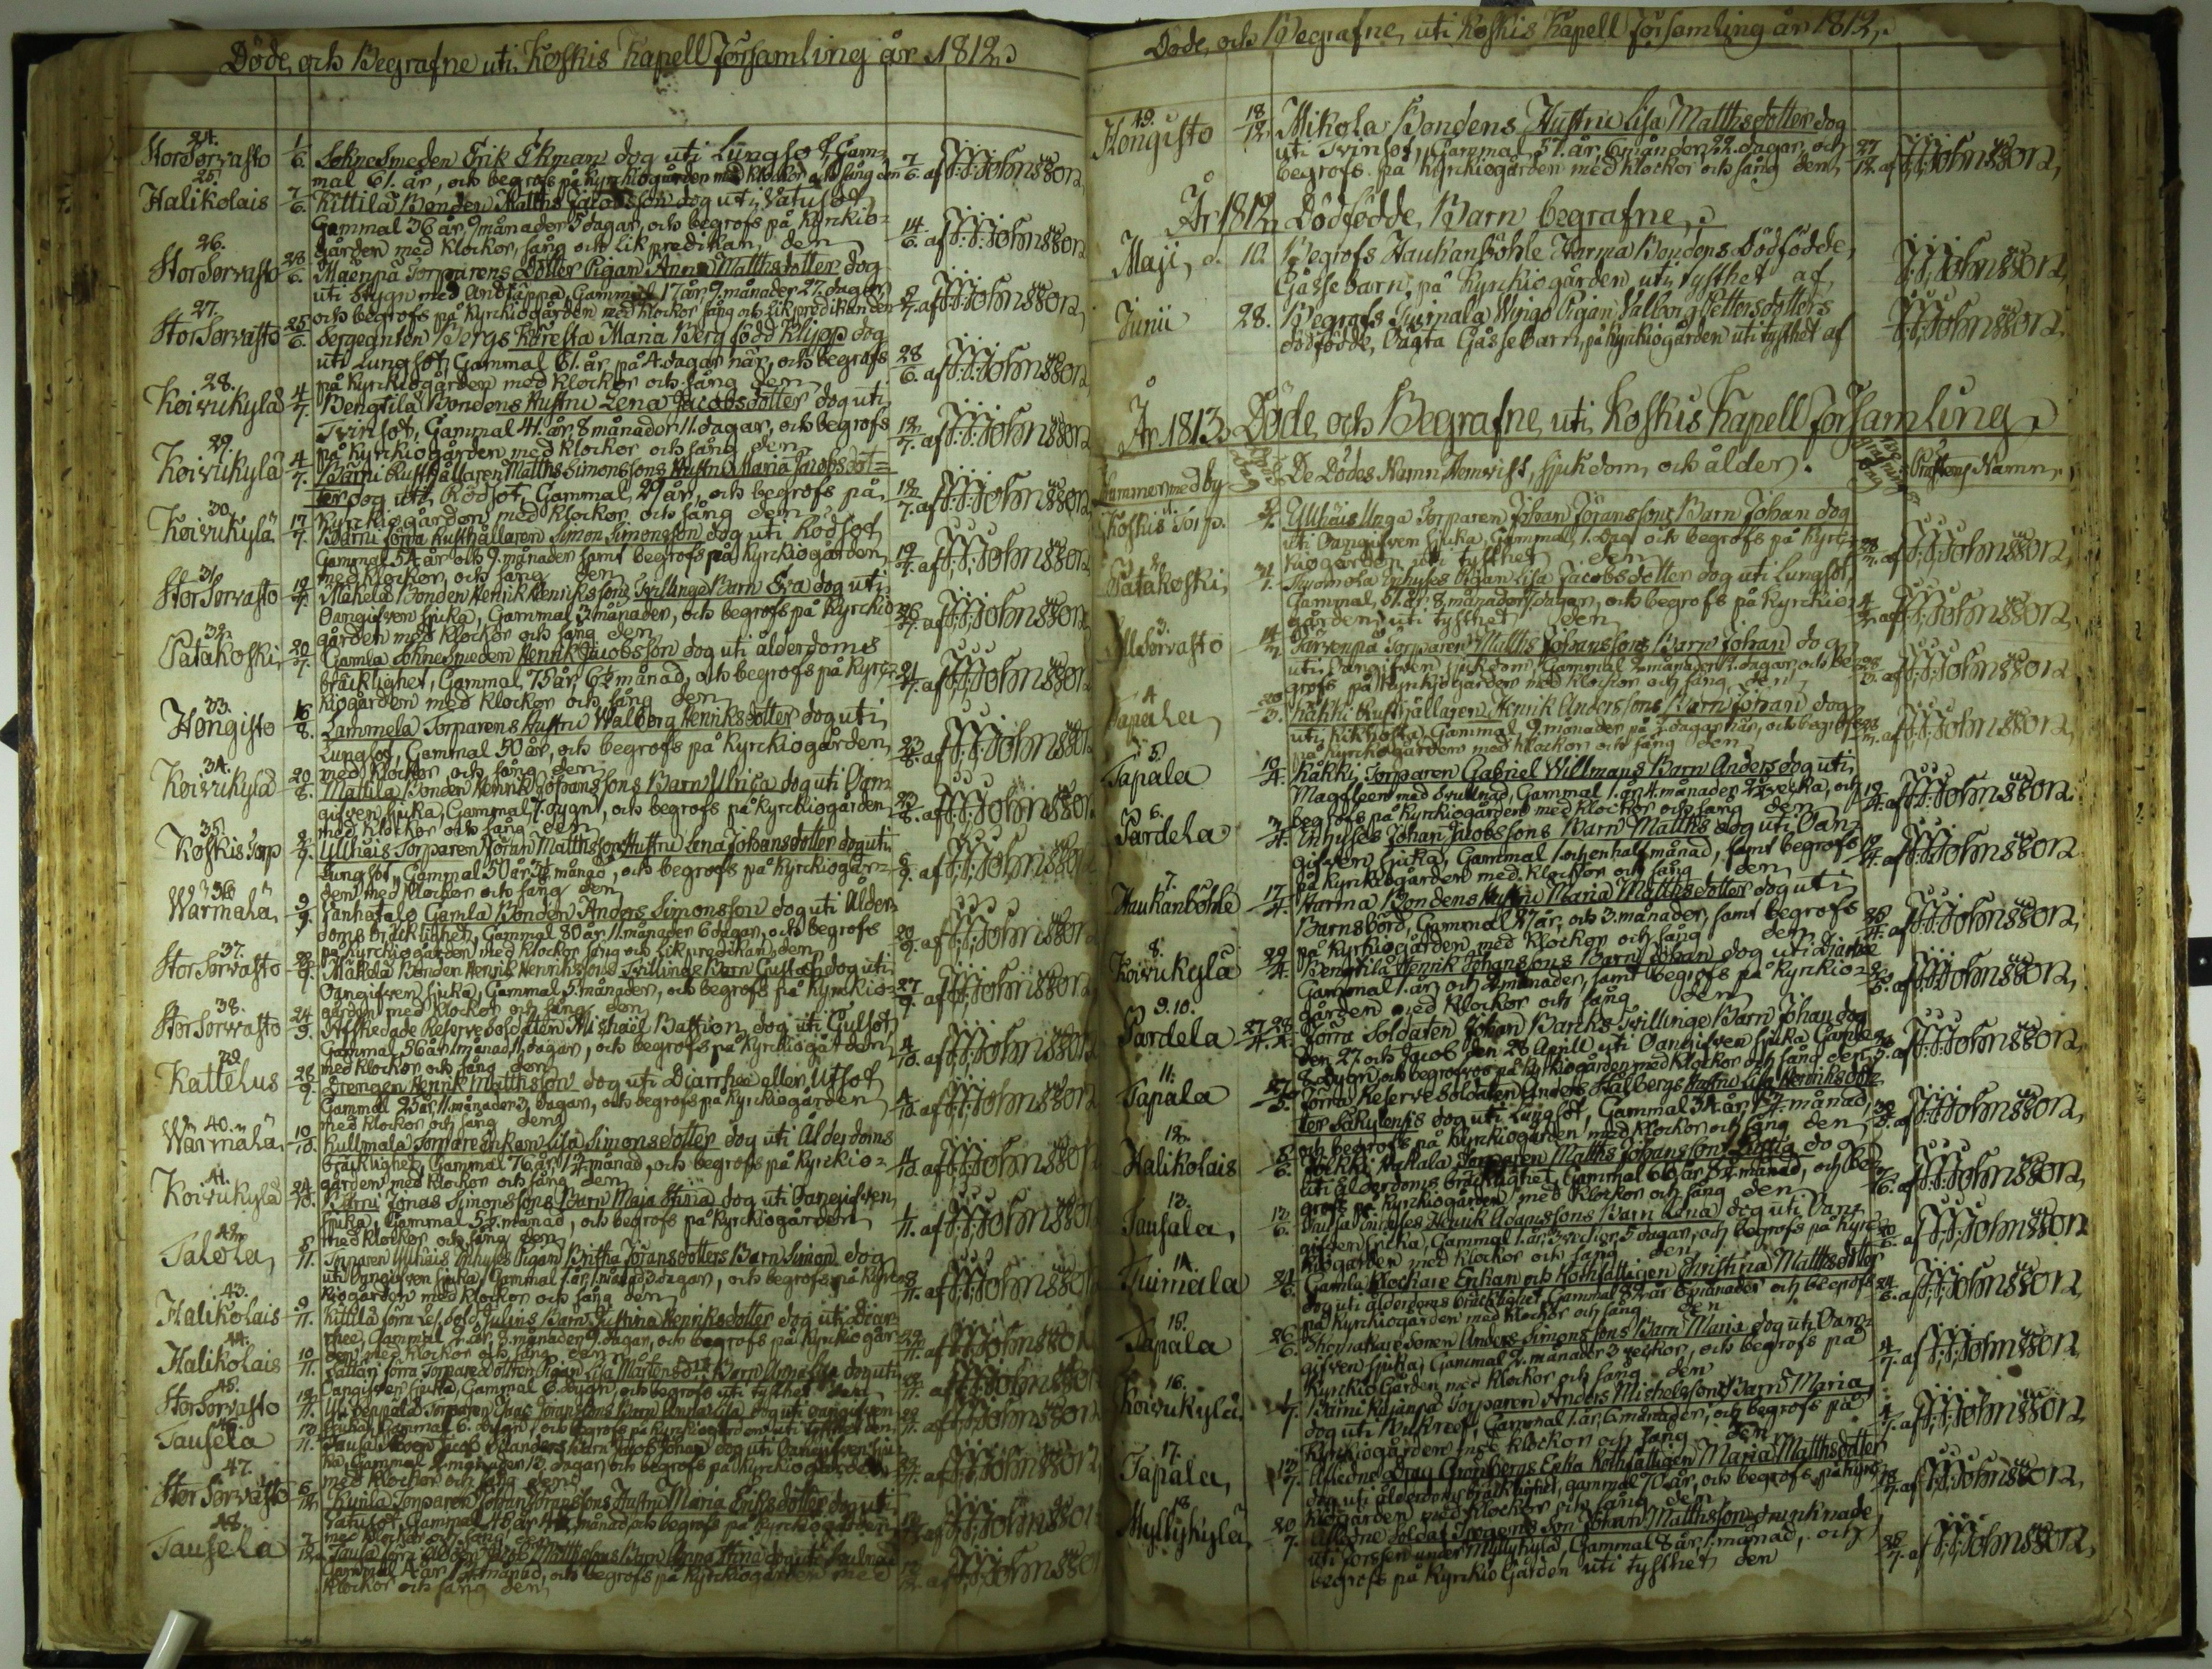 Döde, och Begrafne uti Koskis Kapell Församling år 1812.
24.
StorSorvasto 1/6. SokneSmeden Erik Ekman dog uti Lungsot, Gam-
mal 61. år, och begrofs på kyrckiogården med klockor och sång den 7/6. af J:J:Johnsson
25.
Halikolais 7/6. Kittilä Bonden Matths Jacobsson dog uti Vatusot,
Gammal 36 år, 9 månader 5 dagar, och begrofs på kyrckio-
gården med klockor, sång och likpredikan, den 14/6. af J:J:Johnsson
26.
StorSorvasto 28/6. Mäenpä Torparens Dotter Pigan Anna Matthsdotter dog
uti Stygn med Andtäppa, Gammal 17 år, 9. månader 27. dagar,
och begrofs på kyrckiogården med klockor sång och likpredikan den 9/7. af J:J:Johnsson
27.
StorSorvasto 25/6. Sergeanten Bergs Käresta Maria Berg född Kljpp dog
uti Lungsot, Gammal 61. år på 4. dagar när, och begrofs
på kyrckiogården med klockor och sång den 28/6. af J:J:Johnsson
28.
Koivukylä 4/7. Bengtilä Bondens Hustru Lena Jacobsdotter dog uti
Tvinsot, Gammal 41. år, 8 månader 11. dagar, och begrofs
på kyrckiogården med klockor och sång den 12/7. af J:J:Johnsson
29.
Koivukylä 4/7. Bärni Rusthållaren Matths Simonssons Hustru Maria Jacobsdot-
ter dog uti Rödsot, Gammal 29 år, och begrofs på
Kyrckiogården med klockor och sång den 12/7. af J:J:Johnsson
30.
Koivukylä 17/7. Bärni förra Rusthållaren Simon Simonsson dog uti Rödsot
Gammal 54 år och 9. månader samt begrofs på kyrckiogården
med klockor och sång den 19/7. af J:J:Johnsson
31.
StorSorvasto 19/7. Mäkelä Bonden Henrik Henrikssons Tvillinge Barn Eva dog uti
Oangifven sjuka, Gammal 3 månader, och begrofs på kyrckio-
gården med klockor och sång den 26/7. af J:J:Johnsson
32.
Patakoski 20/7. Gamla SokneSmeden Henrik Jacobsson dog uti ålderdoms
bräcklighet, Gammal 75 år 6½ månad, och begrofs på kyrc-
kiogården med klockor och sång den 21/7. af J:J:Johnsson
33.
Hongisto 16/8. Lammela Torparens Hustru Walborg Henriksdotter dog uti
Lungsot, Gammal 50 år, och begrofs på kyrckiogården
med klockor och sång den 23/8. af J:J:Johnsson
34.
Koivukylä 20/8. Mattila Bonden Henrik Johanssons Barn Ulrica dog uti Oan-
gifven sjuka, Gammal 7. dygn, och begrofs på kyrckiogården
med klockor och sång den 23/8. af J:J:Johnsson
35.
Koskis Torp 2/9. Ullhäis Torparen Jöran Matthsson Hustru Lena Johansdotter dog uti
Lungsot, Gammal 50 år 3½ månad, och begrofs på kyrckiogår-
den med klockor och sång den 6/9. af J:J:Johnsson
36.
Wärmälä 9/9. Panhatalo Gamla Bonden Anders Simonsson dog uti Ålder-
doms bräcklighet, Gammal 80 år, 11. månader 6 dagar, och begrofs
på kyrckiogården med klockor sång och likpredikan den 20/9. af J:J:Johnsson
37.
StorSorvasto 22/9. Mäkelä Bonden Henrik Henrikssons Tvillinge Barn Gustaf dog uti
Oangifven sjuka, Gammal 5. månader, och begrofs på kyrckio-
gården med klockor och sång den 27/9. af J:J:Johnsson
38.
StorSorvasto 24/9. Afskedade Reservesoldaten Michaël Battion dog uti Gulsot,
Gammal 56 år 1. månad 11. dagar, och begrofs på kyrckiogården
med klockor och sång den 4/10. af J:J:Johnsson
39.
Kattelus 28/9. Drengen Henrik Matthsson dog uti Diarrhee eller Utsot
Gammal 25 år, 11. månader 3. dagar, och begrofs på kyrckiogården
med klockor och sång den 4/10. af J:J:Johnsson
40.
Wärmälä 10/10. Kullmala Torpare Enkan Lisa Simonsdotter dog uti Ålderdoms
bräcklighet, Gammal 76 år 1½ månad, och begrofs på kyrckio-
gården med klockor och sång den 11/10. af J:J:Johnsson
41.
Koivukylä 24/10. Bärni Jonas Simonssons Barn Maja Stina dog uti Oangifven
sjuka, Gammal 5½. månad, och begrofs på kyrckiogården
med klockor och sång den 1/11. af J:J:Johnsson
42.
Talola 5/11. Torparen Ullhäis Inhyses Pigan Britha Jöransdotters Barn Simon dog
uti Oangifven sjuka, Gammal 1. år, 1. månad 3. dagar, och begrofs på kyrc-
kiogården med klockor och sång den 8/11. af J:J:Johnsson
43.
Halikolais 9/11. Kittilä förra Res. Sold. Julins Barn Justina Henriksdotter dog uti Diar-
rhee, Gammal 2. år, 8. månader 9. dagar, och begrofs på kyrckiogår-
den med klockor och sång den 22/11. af J:J:Johnsson
44.
Halikolais 10/11. förra Torparedottern Pigan Lisa Mårtensdotters Barn Anna Lisa dog uti
Oangifven sjuka, Gammal 6. dygn, och begrofs uti tysthet den 22/11. af J:J:Johnsson
45.
StorSorvasto 12/11. Torparen Isac Jöranssons Barn Anna Lisa dog uti oangifven
sjuka, Gammal 6. dygn, och begrofs på kyrckiogården uti tysthet den 22/11. af J:J:Johnsson
46.
Tausela 13/11. Jacob Johan dog uti Oangifven sju-
ka, Gammal 2. månader 13. dagar, och begrofs på kyrckiogården
med klockor och sång den 22/11. af J:J:Johnsson
47.
StorSorvasto 6/12. Kynlä Torparen Johan Jöranssons Hustru Maria Eriksdotter dog uti
Vatusot, Gammal 48 år 4½ månad, och begrofs på kyrckiogården
med klockor och sång den af J:J:Johnsson
48.
Tausela 7/12. Matthssons Barn Anna Stina dog uti
Gammal 4 år månad, och begrofs på kyrckiogården med
klockor och sång den af J:J:Johnsson
Döde, och Begrafne, uti Koskis Kapell församling år 1812.
49.
Hongisto 18/12. Mikola Bondens Hustru Lisa Matthsdotter dog
uti Tvinsot, Gammal 51. år, 6 månader 22. dagar, och
begrofs på kyrckiogården med klockor och sång den 27/12. af J:J:Johnsson,
År 1812, Dödfödde Barn begrafne,
Maji, d. 10. Begrofs Haukanböhle Harma Bondens Dödfödde,
Gåssebarn, på kyrckiogården, uti tysthet af, J:J:Johnsson,
Junii 28. Begrofs Tuimala Wingo Pigan Valborg Pettersdotters
dödfödde, Oägta Gåssebarn, på kyrckiogården uti tysthet af J:J:Johnsson,
År 1813. Döde och Begrafne, uti Koskis Kapell församling,
Nummer, med by De Dödas Namn Hemvist, sjukdom, och ålder. Prästens Namn,
1.
Koskis Torp. Ullhäis Unga Torparen Johan Jöranssons Barn Johan dog
uti Oangifven sjuka, Gammal, 1. dag, och begrofs på kyrc-
kiogården uti tysthet den af J:J:Johnsson,
2.
Patakoski, Inhyses Pigan Lisa Jacobsdotter dog uti Lungsot,
Gammal, 61. år, 8 månader 7 dagar, och begrofs på kyrckio-
gården, uti tysthet den af J:J:Johnsson,
3.
Järvenpä Torparen Matths Johanssons Barn Johan dog
uti Oangifven sjukdom Gammal 2 månader 2. dagar, och be-
grofs på kyrckiogården med klockor och sång den af J:J:Johnsson
4
Tapala, Käkki Rusthållaren Henrik Anderssons Barn Johan dog
uti kikhosta, Gammal 9. månader på 2. dagar när, och begrofs
på kyrckiogården med klockor och sång den af J:J:Johnsson,
5.
Tapala 10/4. Käkki Torparen Gabriel Willmans Barn Anders dog uti
Magpleen med Svullnad, Gammal 1. år, 4. månader 2½ vecka, och
begrofs på kyrckiogården med klockor och sång den af J:J:Johnsson.
6.
Pardela Inhyses Johan Jacobssons Barn Matths dog uti Oan-
gifven sjuka, Gammal 1. och en half månad, samt begrofs
på kyrckiogården med klockor och sång den af J:J:Johnsson
7.
Haukanböhle 17/4. Harma Bondens Hustru Maria Matthsdotter dog uti
Barnsbörd, Gammal 27 år, och 3. månader, samt begrofs
på kyrckiogården med klockor och sång den 25/4. af J:J:Johnsson,
8.
Koivukylä 22/4. Bengtilä Henrik Johanssons Barn Johan dog uti Diarhee
Gammal 1. år, och 2 månader, samt begrofs på kyrckio-
gården med klockor och sång den 2/5. af J:J:Johnsson,
9. 10.
Pardela 27/4. 28/4. Förra Soldaten Johan Barcks Tvillinge Barn Johan dog
den 27. och Jacob den 28 Aprill uti Oangifven sjuka Gamle
8. dygn, och begrofvos på kyrckiogården med klockor och sång den af J:J:Johnsson,
11.
Tapala Förra Reserve Soldaten Anders Stålbergs Hustru Lisa Henriksdot-
ter Säkylensis dog uti Lungsot, Gammal 34 år, 1½. månad,
och begrofs på kyrckiogården med klockor och sång den 30/5. af J:J:Johnsson,
12.
Halikolais 5/6. Torparen Matths Johansson dog
uti ålderdoms bräcklighet, Gammal 66 år 8½ månad, och be-
grofs på kyrckiogården med klockor och sång den af J:J:Johnsson,
13.
Tausala, 13/6. Inhyses Henrik Adamssons Barn Lena dog uti Oan-
gifven sjuka, Gammal 1. år, 3. veckor, 5 dagar, och begrofs på kyrc-
kiogården med klockor och sång den 20/6. af J:J:Johnsson
14.
Tuimala 21/6. Gamla Klockare Enkan och Rothfattigen Christina Matthsdotter
dog uti ålderdoms bräcklighet, Gammal 84 år 6 månader och begrofs
på kyrckiogården med klockor och sång den 24/6. af J:J:Johnsson,
15.
Tapala 26/6. Skomakare Sonen Anders Simonssons Barn Maria dog uti Oan-
gifven sjuka, Gammal 2. månader 3 veckor, och begrofs på
kyrckioGården med klockor och sång den 4/7. af J:J:Johnsson,
16.
Koivukylä, 1/7. Bärni Torparen Anders Michelssons Barn Maria
dog uti Bukreef, Gammal 1. år, 6. månader, och begrofs på
kyrckiogården med klockor och sång den 4/7. af J:J:Johnsson,
17.
Tapala, 13/7. Aflidne Drag. Grönbergs Enka Rothfattigen Maria Matthsdotter
dog uti ålderdoms bräcklighet, gammal 70 år, och begrofs på kyrc-
kiogården med klockor och sång den 18/7. af J:J:Johnsson,
18.
Myllykylä, 20/7. Aflidne Soldat Trogens Son Johan Matthsson drunknade
uti Forssen under Myllykylä, Gammal 8 år, 1. månad, och
begrofs på kyrckioGården uti tysthet den 28/7. af J:J:Johnsson,